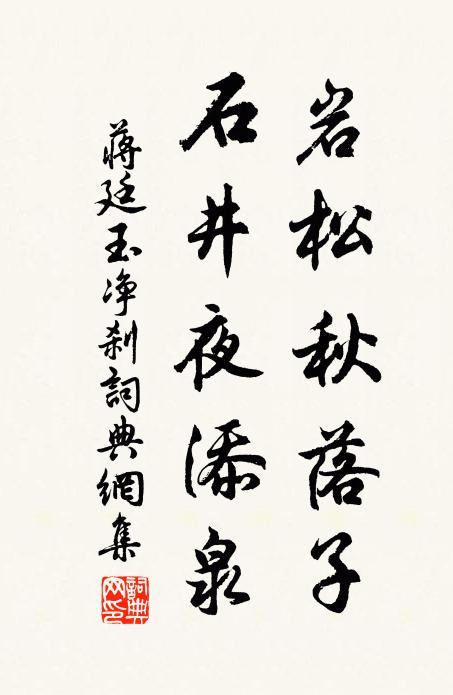 岩松秋落子
石井夜添泉
蒋廷玉净剎詞典網集
詞典网印